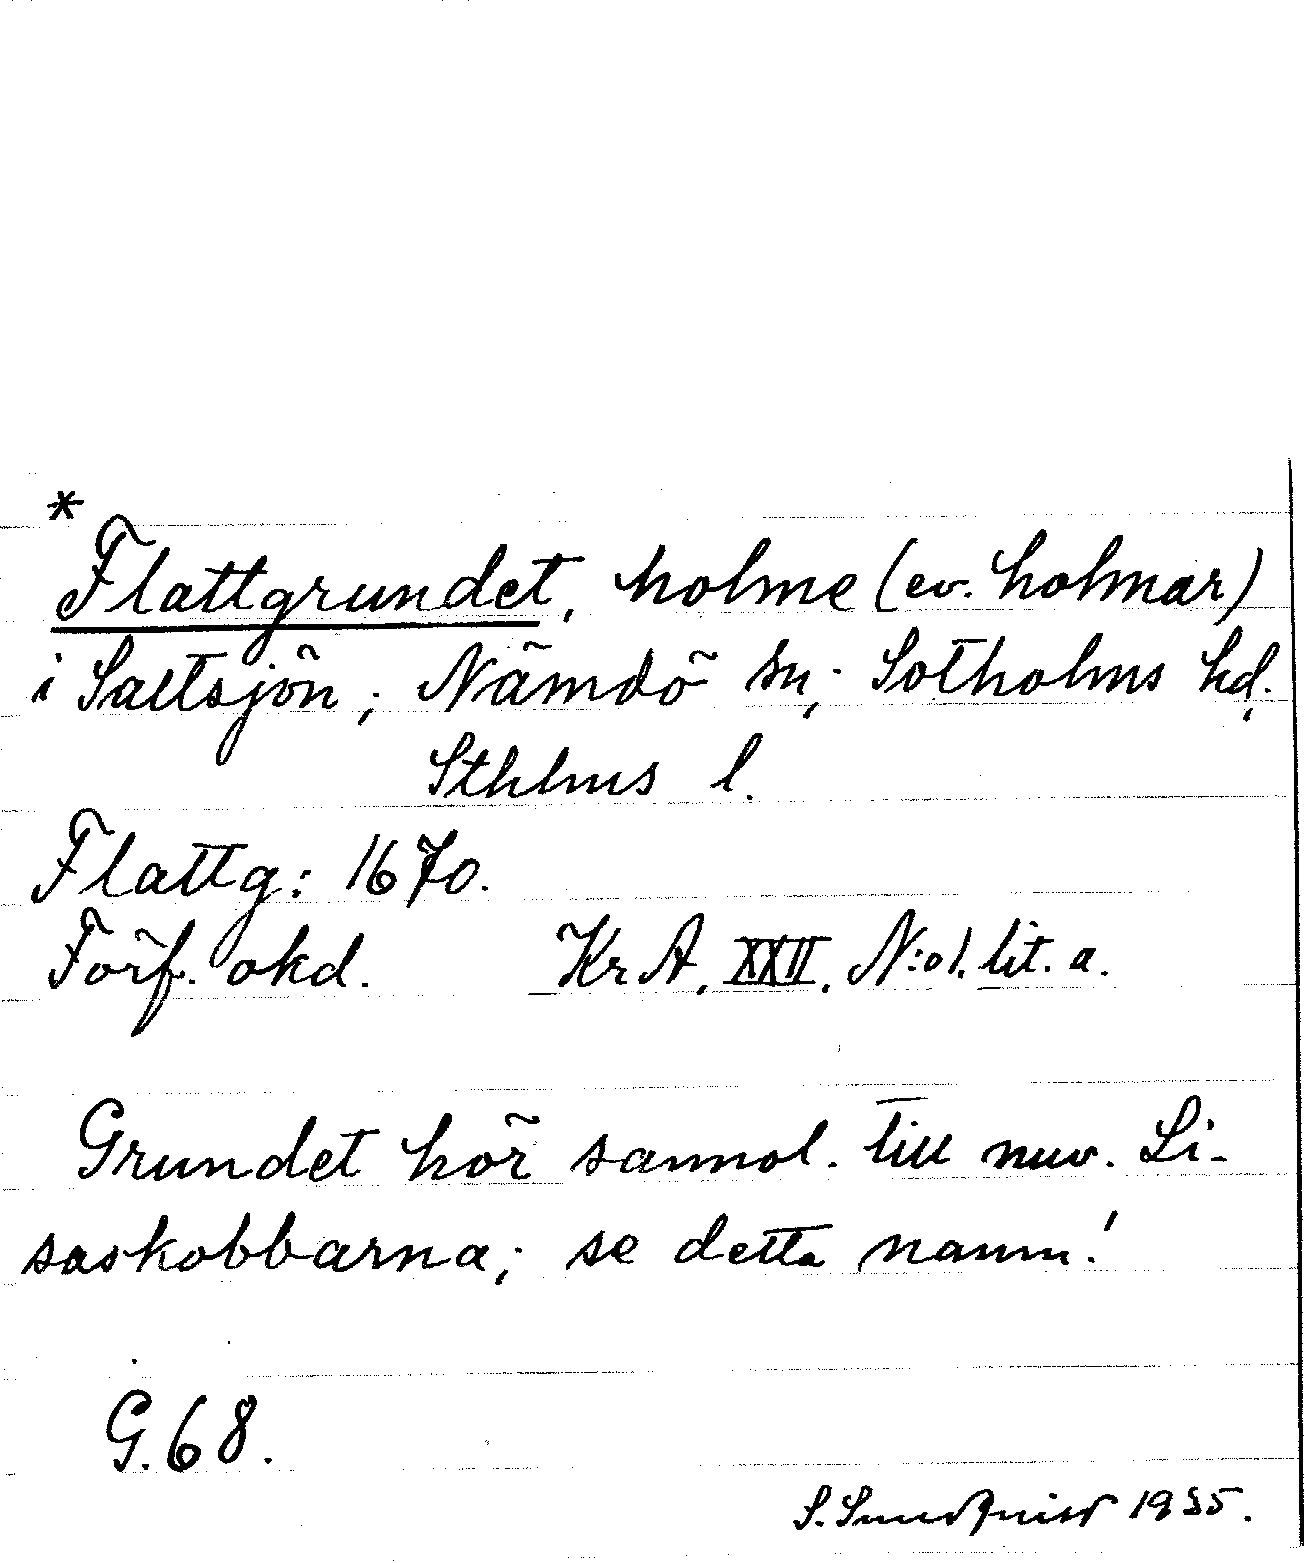 *
Flattgrundet, holme (ev. holmar)
i Saltsjön; Nämdö sn; Sotholms hd.
Sthlms l.
Flattg: 1670.
Förf. okd. KrA, XXII, N:o 1. lit. a.
Grundet hör sannol. till nuv. Li-
saskobbarna; se detta namn!
G. 68.
S. Sundqvist 1935.